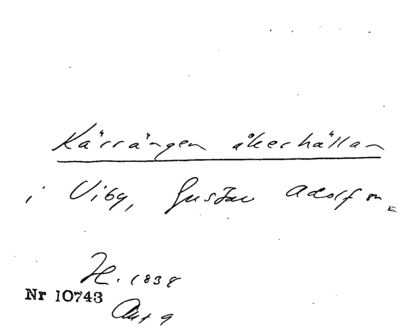 Kärrängen åkerhällan
i Viby, Gustav Adolf sn.
H. 1838
Nr 10743